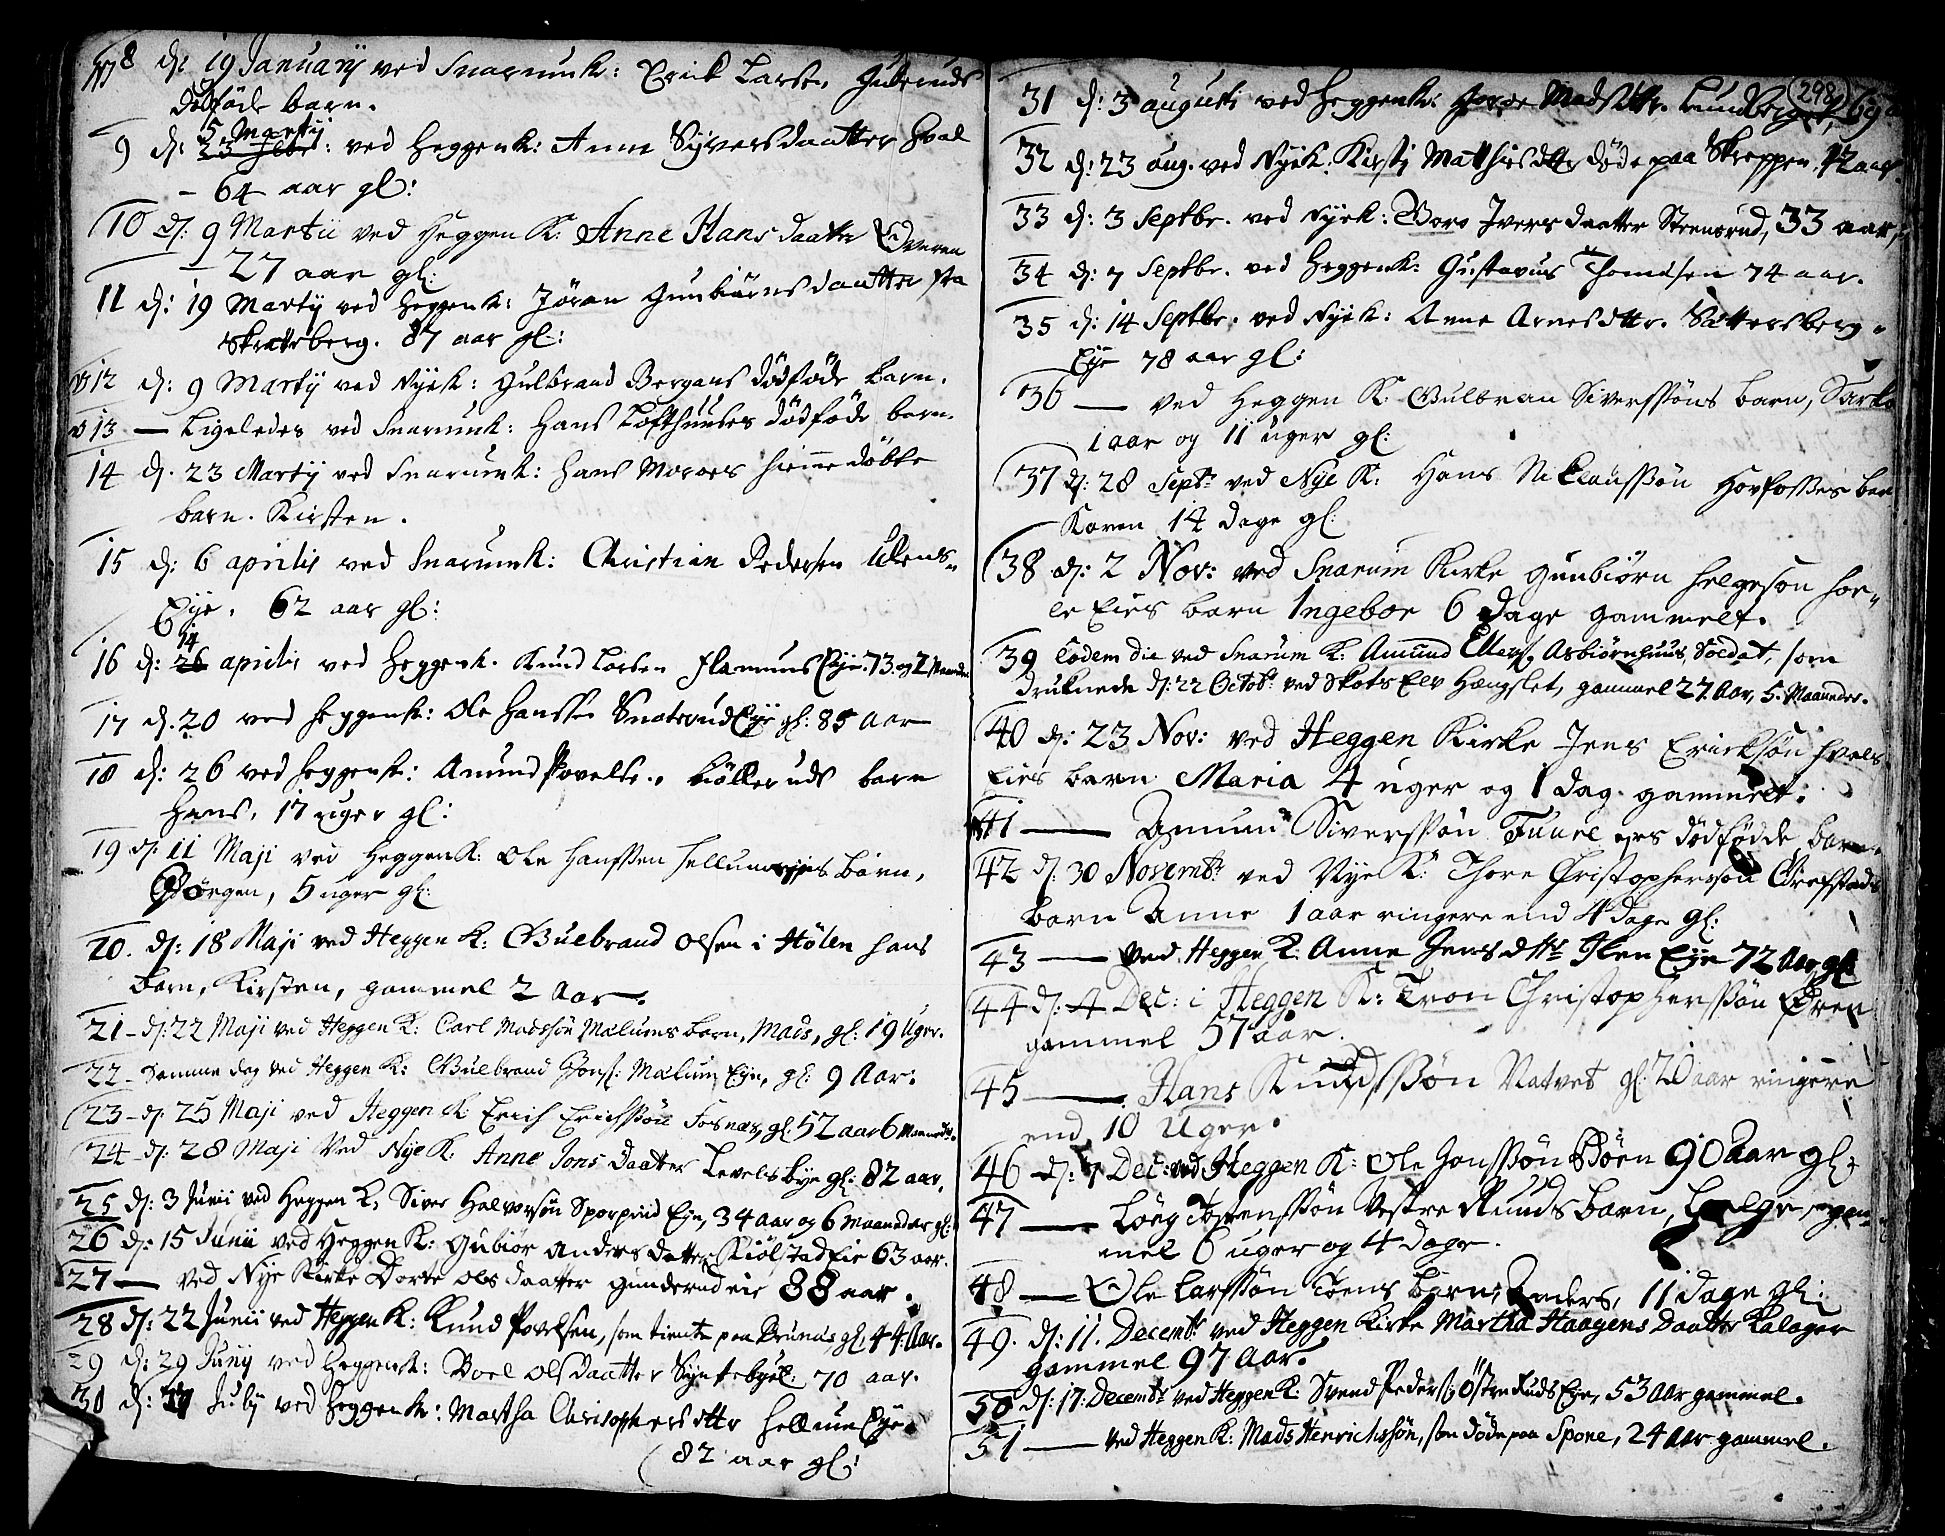 8 d: 19 January ved Snarumk: Erick Larsen Guberuds
dødföde barn.
5 Marty
9 d: 23 Febr: ved Heggenk: Anne Syversdaatter Hval
- 64 aar gl:
10 d: 9 Martii ved Heggen K: Anne Hansdaatter
27 aar gl:
11 d: 19 Marty ved Heggenk: Jöran Gunbiörnsdaatter fra
Skratsberg. 87 aar gl:
12 d: 9 Marty ved Nyek: Gulbrand Bergans dödföde barn.
13 — Ligeledes ved Snarumk: Hans Lofthuuses dödföde barn.
14 d. 23 Marty ved Snarumk: Hans Moroes hiemmedöbte
barn. Kirsten.
15 d: 6 aprilis ved Snarumk: Christian Pedersen Ulens-
Eye. 62 aar gl:
14
16 d: 26 aprilis ved Heggenk. Knud Larsen Flannums Eye. 73. og 2 Maaneder
17 d. 20 ved Heggenk: Ole Hanssen Snatrud Eye gl: 85 Aar
18 d: 26 ved Heggenk: Amund Povelsen Kölleruds barn
Hans, 17 uger gl:
19 d: 11 Maji ved Heggen K: Ole Hanssen Hellumeyes barn,
Börgen, 5 uger gl:
20. d: 18 Maji ved Heggen K: Gulbrand Olsen i Hölen hans
barn, Kirsten, gammel 2 Aar.
21 - d: 22 Maji ved Heggen K: Carl Madssön Mælums barn, Mads, gl: 19 Uger.
22 - Samme dag ved Heggen K: Gulbrand Mælum Eye, gl: 9 Aar.
23 - d: 25 Maji ved Heggen K: Erich Erichssön Fosnæs, gl: 57 aar 6 Maaneder.
24 - d: 28 Maji Ved Nye K: Anne Jons Daatter Levelsbye gl: 82 aar.
25 d: 3 Junii ved Heggen K: Siver Halvorsön Sporpind Eye, 34 aar og 6 maaneder gl:
26 d: 15 Junii ved Heggen K: Gubiör Andersdatter Kiölstad Eie 63 aar.
27 — ved Nye Kirke Dorte Olsdaatter Gunderud eie 88 aar.
28 d: 22 Junii ved Heggen K: Knud Povelsen, som tiente paa Bruunæs, gl: 44 Aar.
29 d: 29 Juny ved Heggenk: Boel Olsdaatter 70 aar.
30 d: July ved Heggenk: Martha Chrisophersdttr Hellum Eye.
82 aar gl:
298
31 d: 3 augusti ved Heggenk: Madsdttr. Lundberget, 69
32 d: 23 aug. ved Nyek. Kirsti Matthisdttr döde paa Skreppen. 12 aar.
33 d: 3 Septbr. ved Nyek: Boro Iversdaatter Steensrud, 33 aar,
34 d: 7 Septbr. ved Heggenk: Gustavus Thomesen 74 aar.
35 d: 14 Septbr. ved Nyek: Anne Arnesdttr. Sættersberg-
Eye 78 aar gl:
36 — ved Heggen K: Gulbran Siverssöns barn,
1 aar og 11 uger gl:
37 d: 28 Septr ved Nye K: Hans Niclaussön Hovfosses bar
Karen 14 dage gl:
38 d: 2 Nov: ved Snarum Kirke Gunbiörn Helgeson Hor-
le Eies barn Ingebor 6 dage gammelt.
39 Eodem die ved Snarum K: Amund Ellers. Asbiörnhuus, Soldat, som
druknede d: 22 Octobr ved Skots Elv Hængslet, gammel 27 Aar, 5. Maaneder.
40 d: 23 Nov: ved Heggen Kirke Jens Ericksön Hvals
Eies barn Maria 4 uger og 1 dag. gammelt.
41 — Amund Siverssön dödfödde barn.
42 d: 30 Novembr ved Nye K: Thore Christophersson Grefstads
barn Anne 1 aar ringere end 4 dage gl:
43 — ved Heggen K: Anne Jensdttr Iken Eye 72 Aar gl
44 d: 4 Dec: i Heggen K: Tron Christopherssön Eren
gammel 57 aar.
45 — Hans Knudssön Natvet gl: 20 aar ringere
end 10 Uger.
46 d: 7 Dec: ved Heggen K: Ole Jonssön Böen 90 Aar gl:
47 — Torstenssön Vestre Ruuds barn, Helge, gam-
mel 6 uger og 4 dage.
48 — Ole Larssön Töens barn, Anders, 11 dage gl:
49. d: 11. Decembr ved Heggen Kirke Martha Haagens Daatter Kalager
gammel 97 Aar.
50 d: 17: Decembr ved Heggen K: Svend Peders: Östre Ruds Eye, 53 Aar gammel.
51 — ved Heggen K: Mads Henrichssön, som döde paa Spone, 24 Aar gammel.